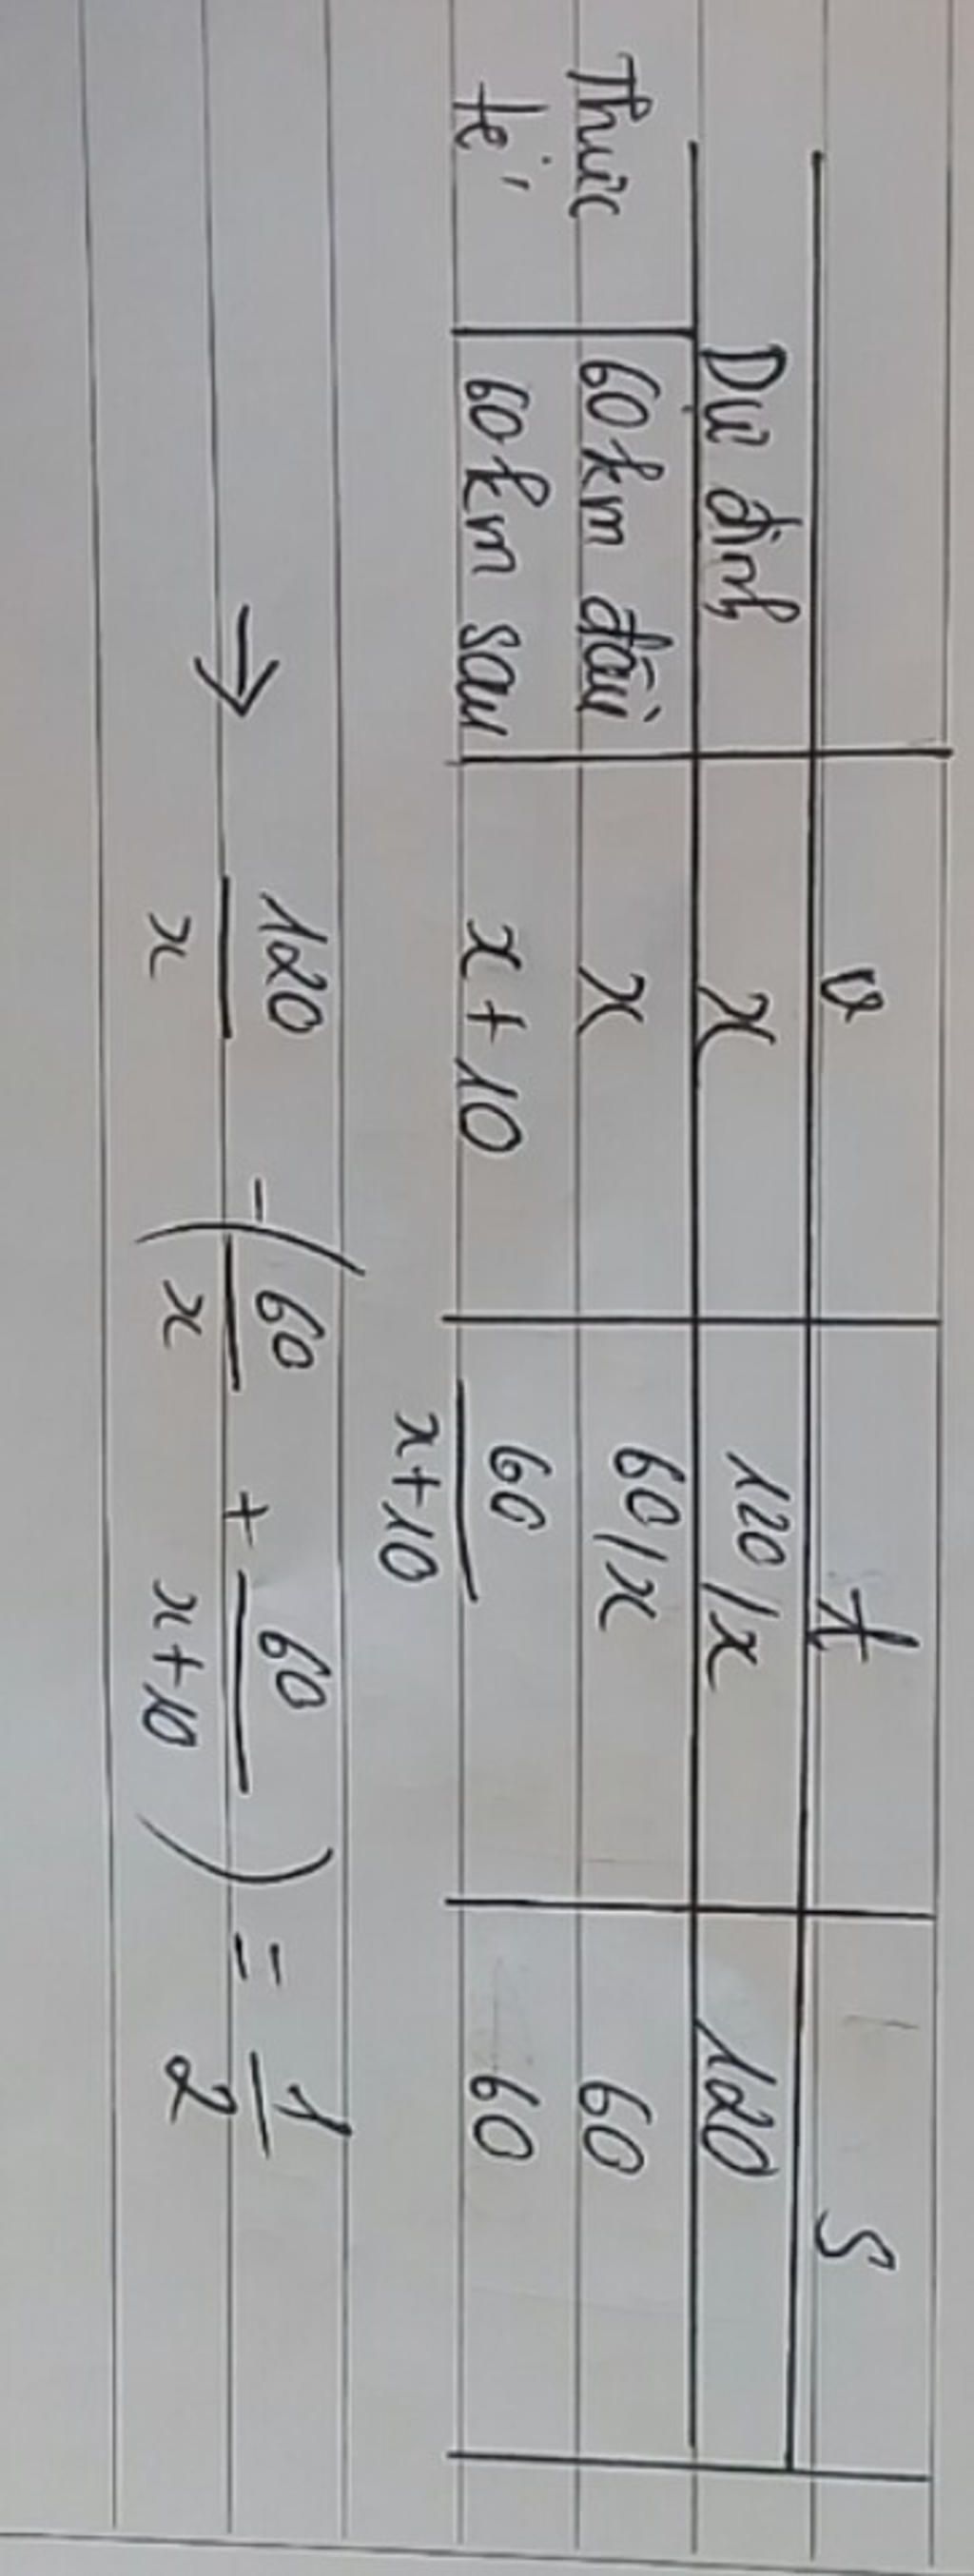 v t S
Dự định x 120/x 120
Thực 60km đầu x 60/x 60
tế 60km sau x+10 60/x+10 60
→ 120/x - (60/x + 60/x+10) = 1/2